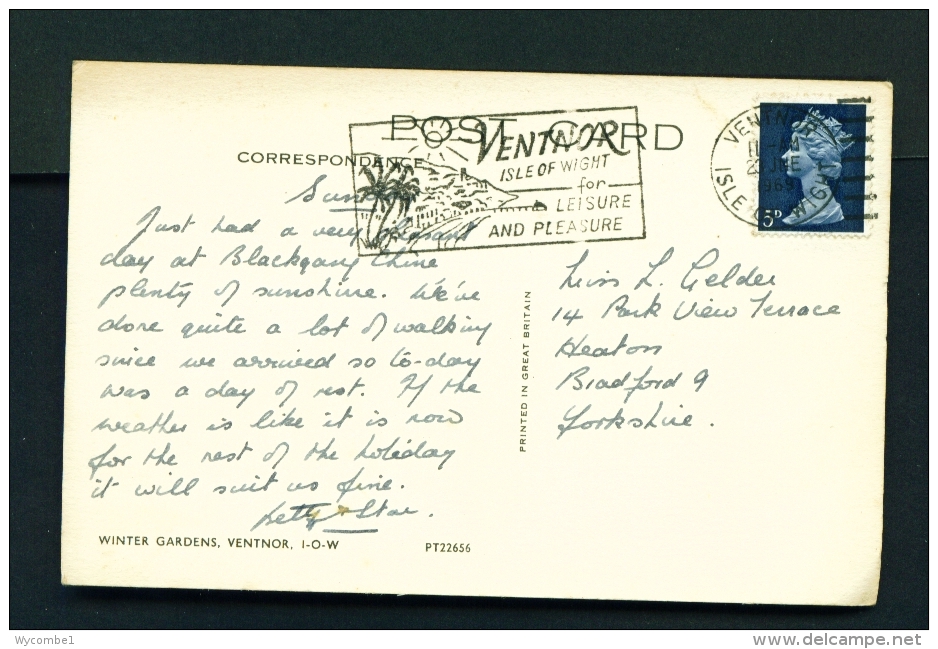 POST CARD
CORRESPONDENCE
VENTNOR
ISLE OF WIGHT
for
LEISURE
AND PLEASURE
VENTNOR
ISLE OF WIGHT
1969
5D
Sunday
Just had a very pleasant
day at Blackgang Chine
plenty of sunshine. We've
done quite a lot of walking
since we arrived so to-day
was a day of rest. If the
weather is like it is now
for the rest of the holiday
it will suit us fine.
Betty & Stan.
Miss L. Gelder
14 Park View Terrace
Heaton
Bradford 9
Yorkshire.
PRINTED IN GREAT BRITAIN
WINTER GARDENS, VENTNOR, I-O-W
PT22656
Wycombe1
delcampe.net